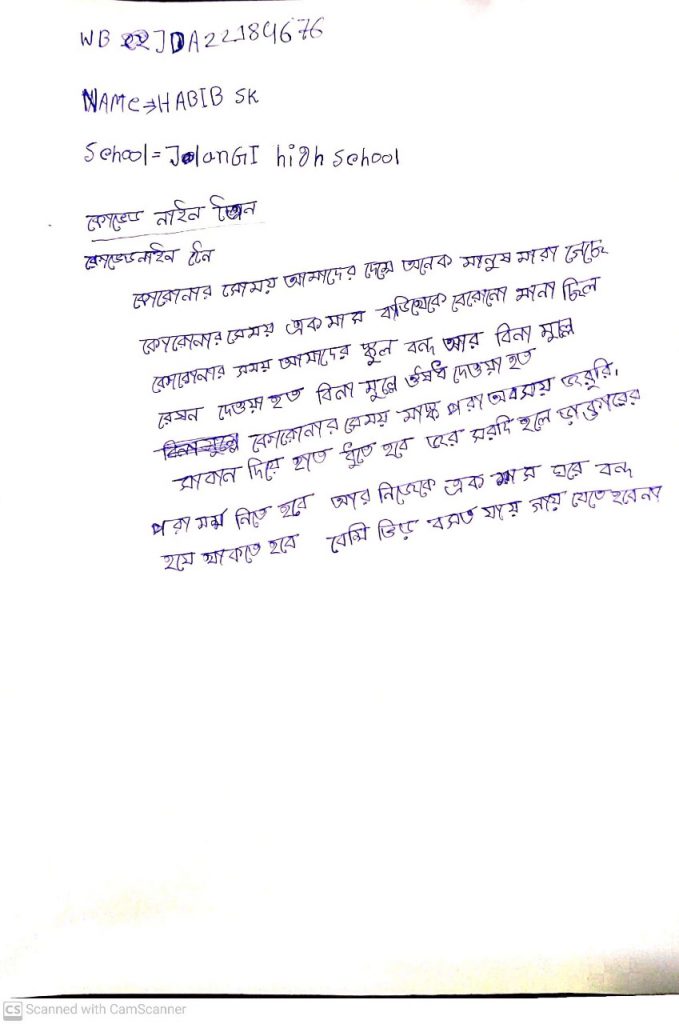 WB JDA22184676
NAMe⇒HABIB SK
School=JolanGI high school
কোভেড নাইন টিন
কোভেডনাইন টৈন
কোরোনার সোময় আমাদের দেশে অনেক মানুষ মারা গেচে
কোরোনার সেময় একমাস বাড়িথেকে বেরোনো মানা ছিল
কোরোনার সময় আমাদের স্কুল বন্দ আর বিনা মুল্লে
রেসন দেওয়া হত বিনা মুল্লে ঔষধ দেওয়া হত
কোরোনার সেময় মাস্ক পরা অবসায় জরুরি,
সাবান দিয়ে হাত ধুঁতে হবে জর সরদি হলে ডাক্তারের
পরামর্শ নিতে হবে আর নিজেকে এক মাস ঘরে বন্দ
হয়ে থাকতে হবে বেসি ভিড় বসত যায় গায় যেতে হবেনা
CS Scanned with CamScanner